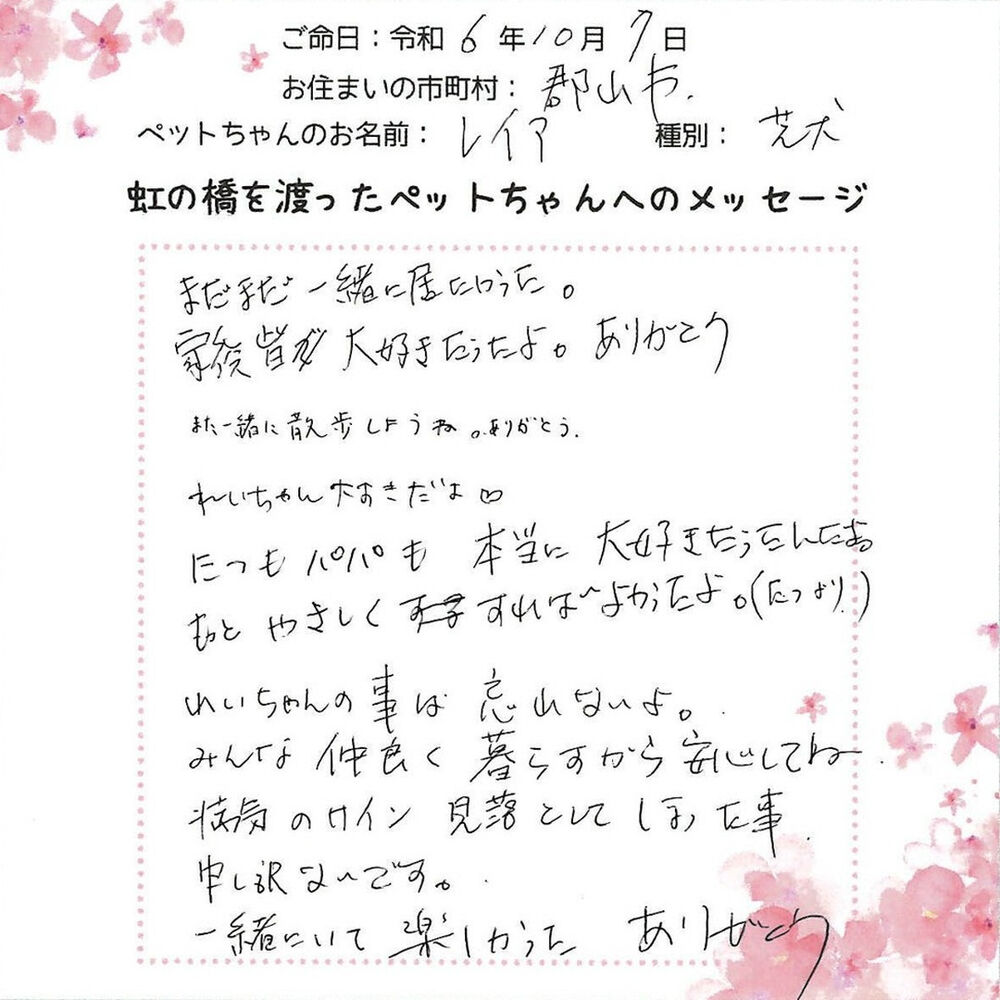 ご命日：令和 6 年 10 月 7 日
お住まいの市町村： 郡山市.
ペットちゃんのお名前： レイア 種別： 芝犬
虹の橋を渡ったペットちゃんへのメッセージ
まだまだ一緒に居たかった。
家族皆が大好きだったよ。ありがとう
また一緒に散歩しようね。ありがとう.
れいちゃん大好きだよ♡
たつもパパも 本当に 大好きだったんだよ
もっと やさしく すればよかったよ。(たつより.)
れいちゃんの事は 忘れないよ。
みんな 仲良く 暮らすから安心してね.
病気のサイン 見落としてしまった事.
申し訳ないです。
一緒にいて 楽しかった ありがとう